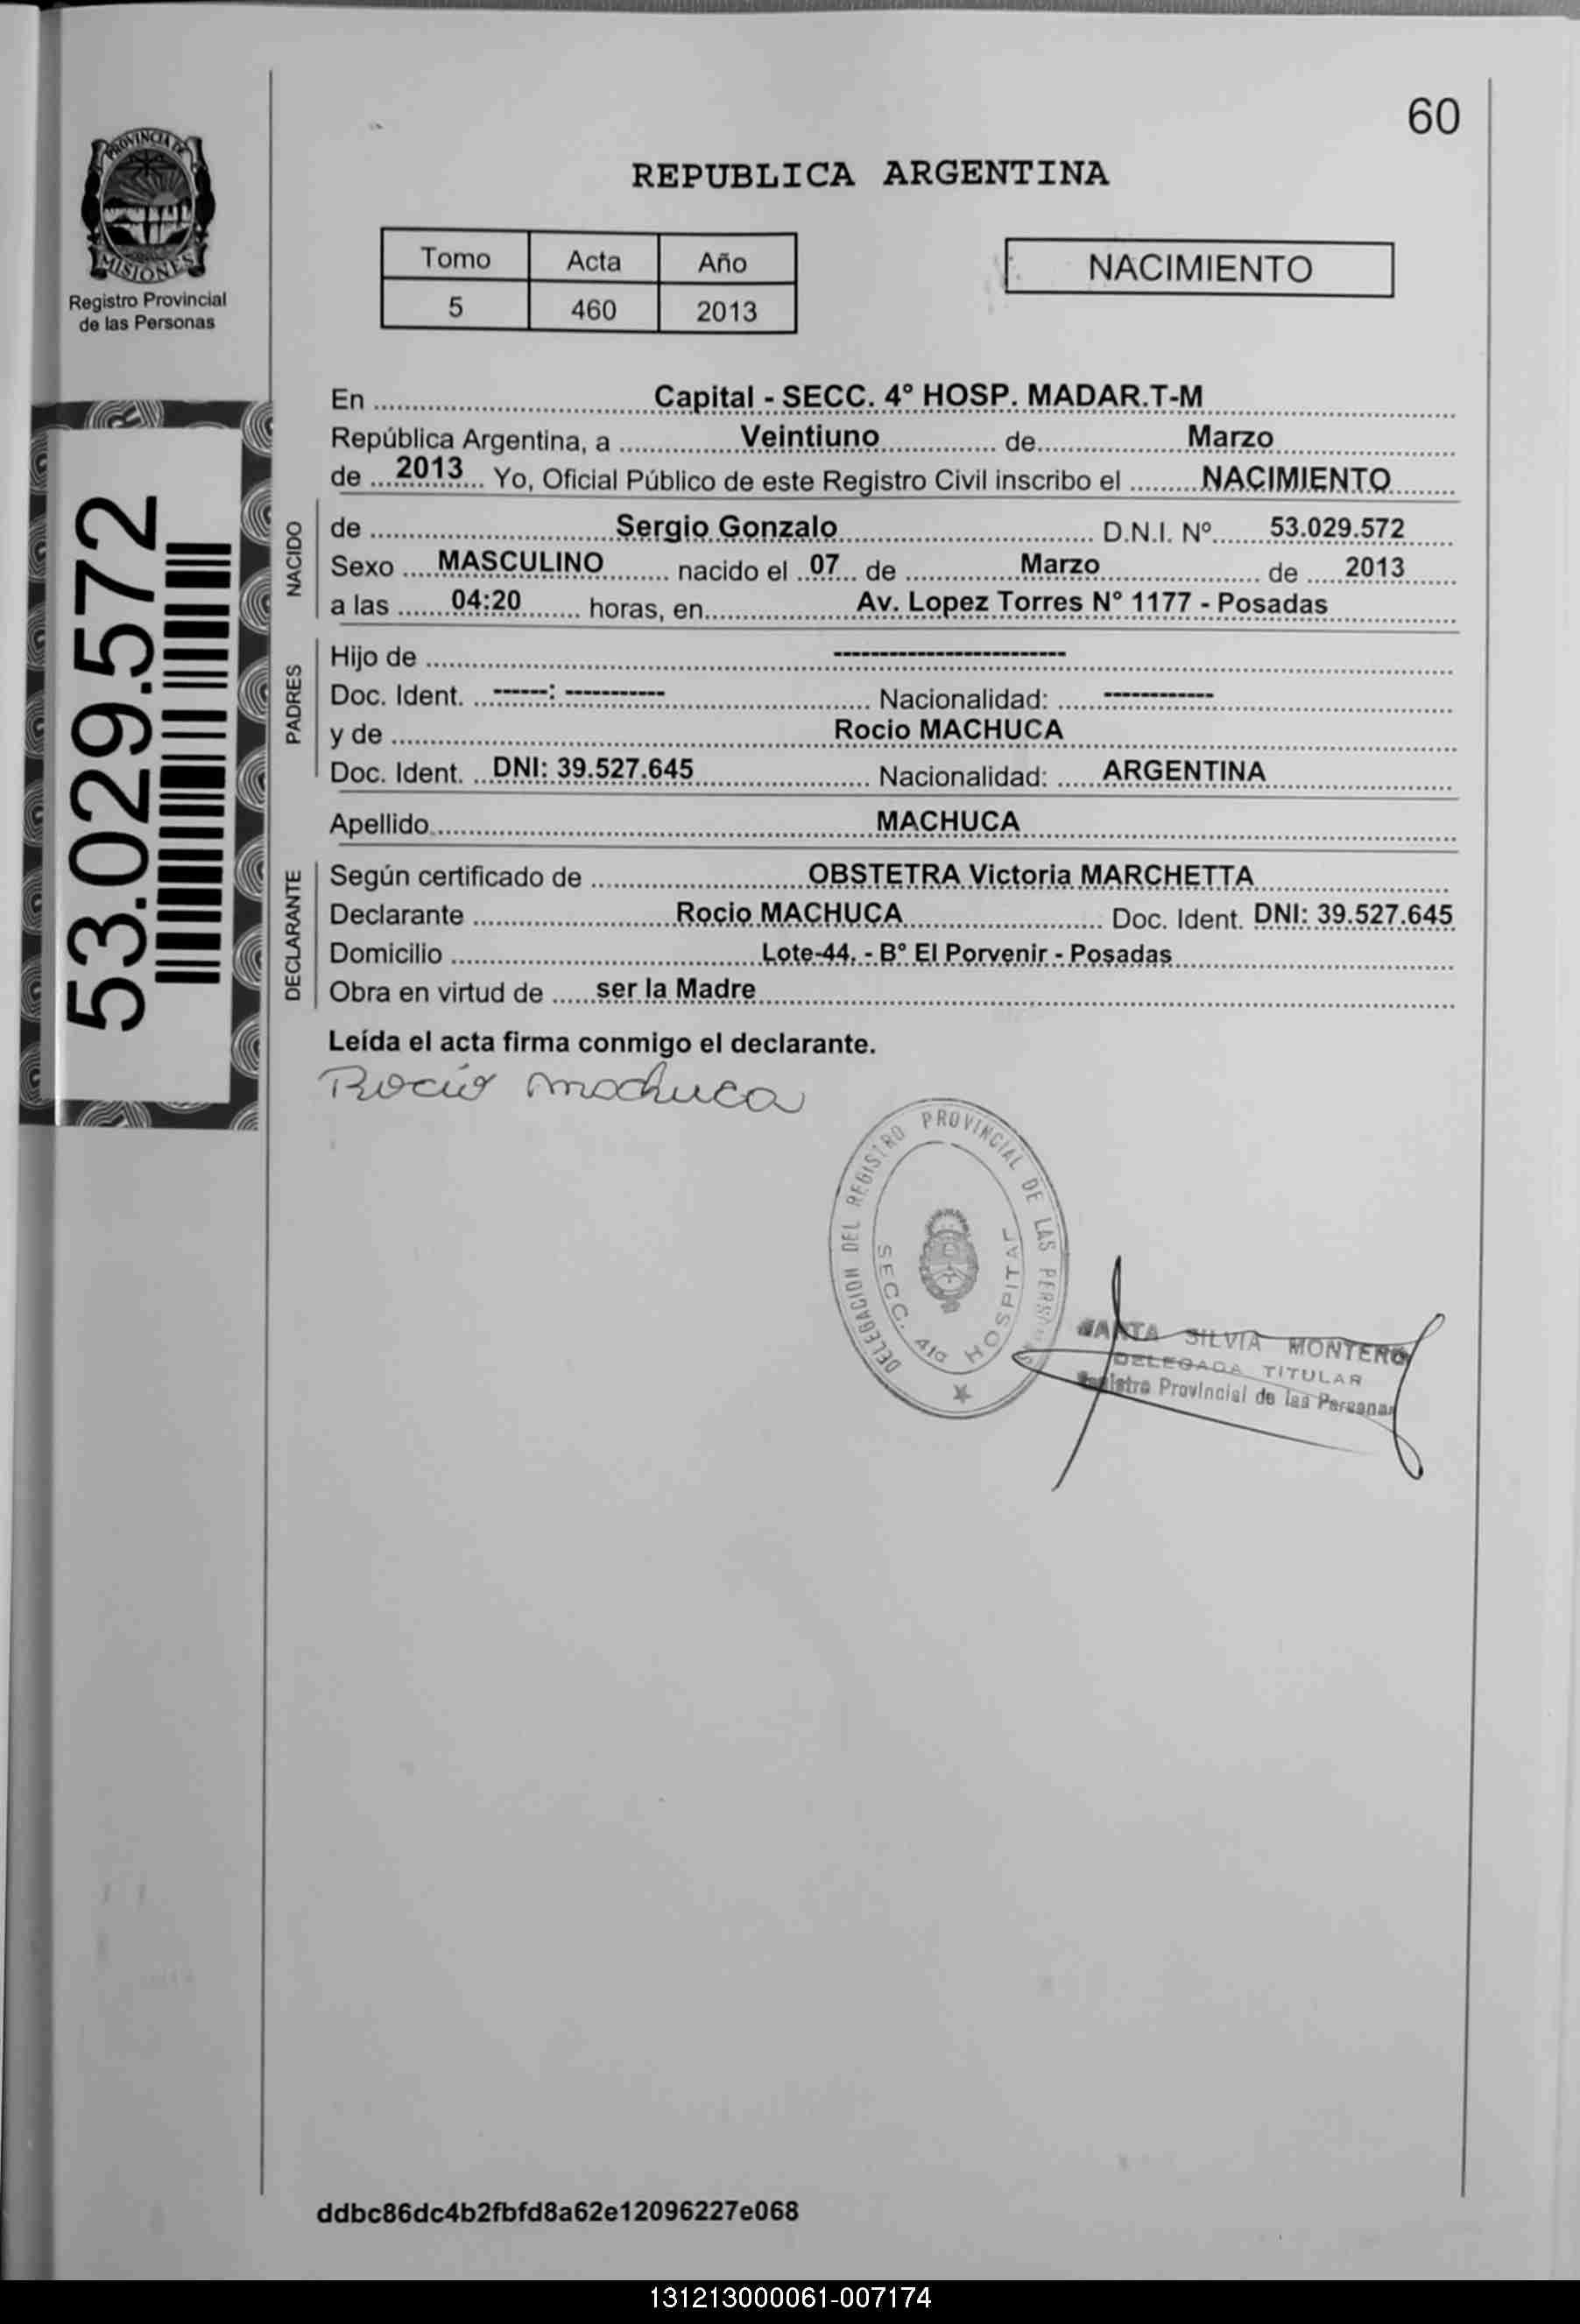 60
PROVINCIA DE
MISIONES
Registro Provincial
de las Personas
REPUBLICA ARGENTINA
Tomo Acta Año
5 460 2013
NACIMIENTO
53.029.572
En Capital - SECC. 4° HOSP. MADAR.T-M
República Argentina, a Veintiuno de Marzo
de 2013 Yo, Oficial Público de este Registro Civil inscribo el NACIMIENTO
NACIDO
de Sergio Gonzalo D.N.I. Nº 53.029.572
Sexo MASCULINO nacido el 07 de Marzo de 2013
a las 04:20 horas, en Av. Lopez Torres N° 1177 - Posadas
PADRES
Hijo de -------------------------
Doc. Ident. ------: ----------- Nacionalidad: ------------
y de Rocio MACHUCA
Doc. Ident. DNI: 39.527.645 Nacionalidad: ARGENTINA
Apellido MACHUCA
DECLARANTE
Según certificado de OBSTETRA Victoria MARCHETTA
Declarante Rocio MACHUCA Doc. Ident. DNI: 39.527.645
Domicilio Lote-44. - B° El Porvenir - Posadas
Obra en virtud de ser la Madre
Leída el acta firma conmigo el declarante.
Rocío Machuca
DELEGACION DEL REGISTRO PROVINCIAL DE LAS PERSONAS
SECC. 4ta HOSPITAL
MARTA SILVIA MONTERO
DELEGADA TITULAR
Registro Provincial de las Personas
ddbc86dc4b2fbfd8a62e12096227e068
131213000061-007174